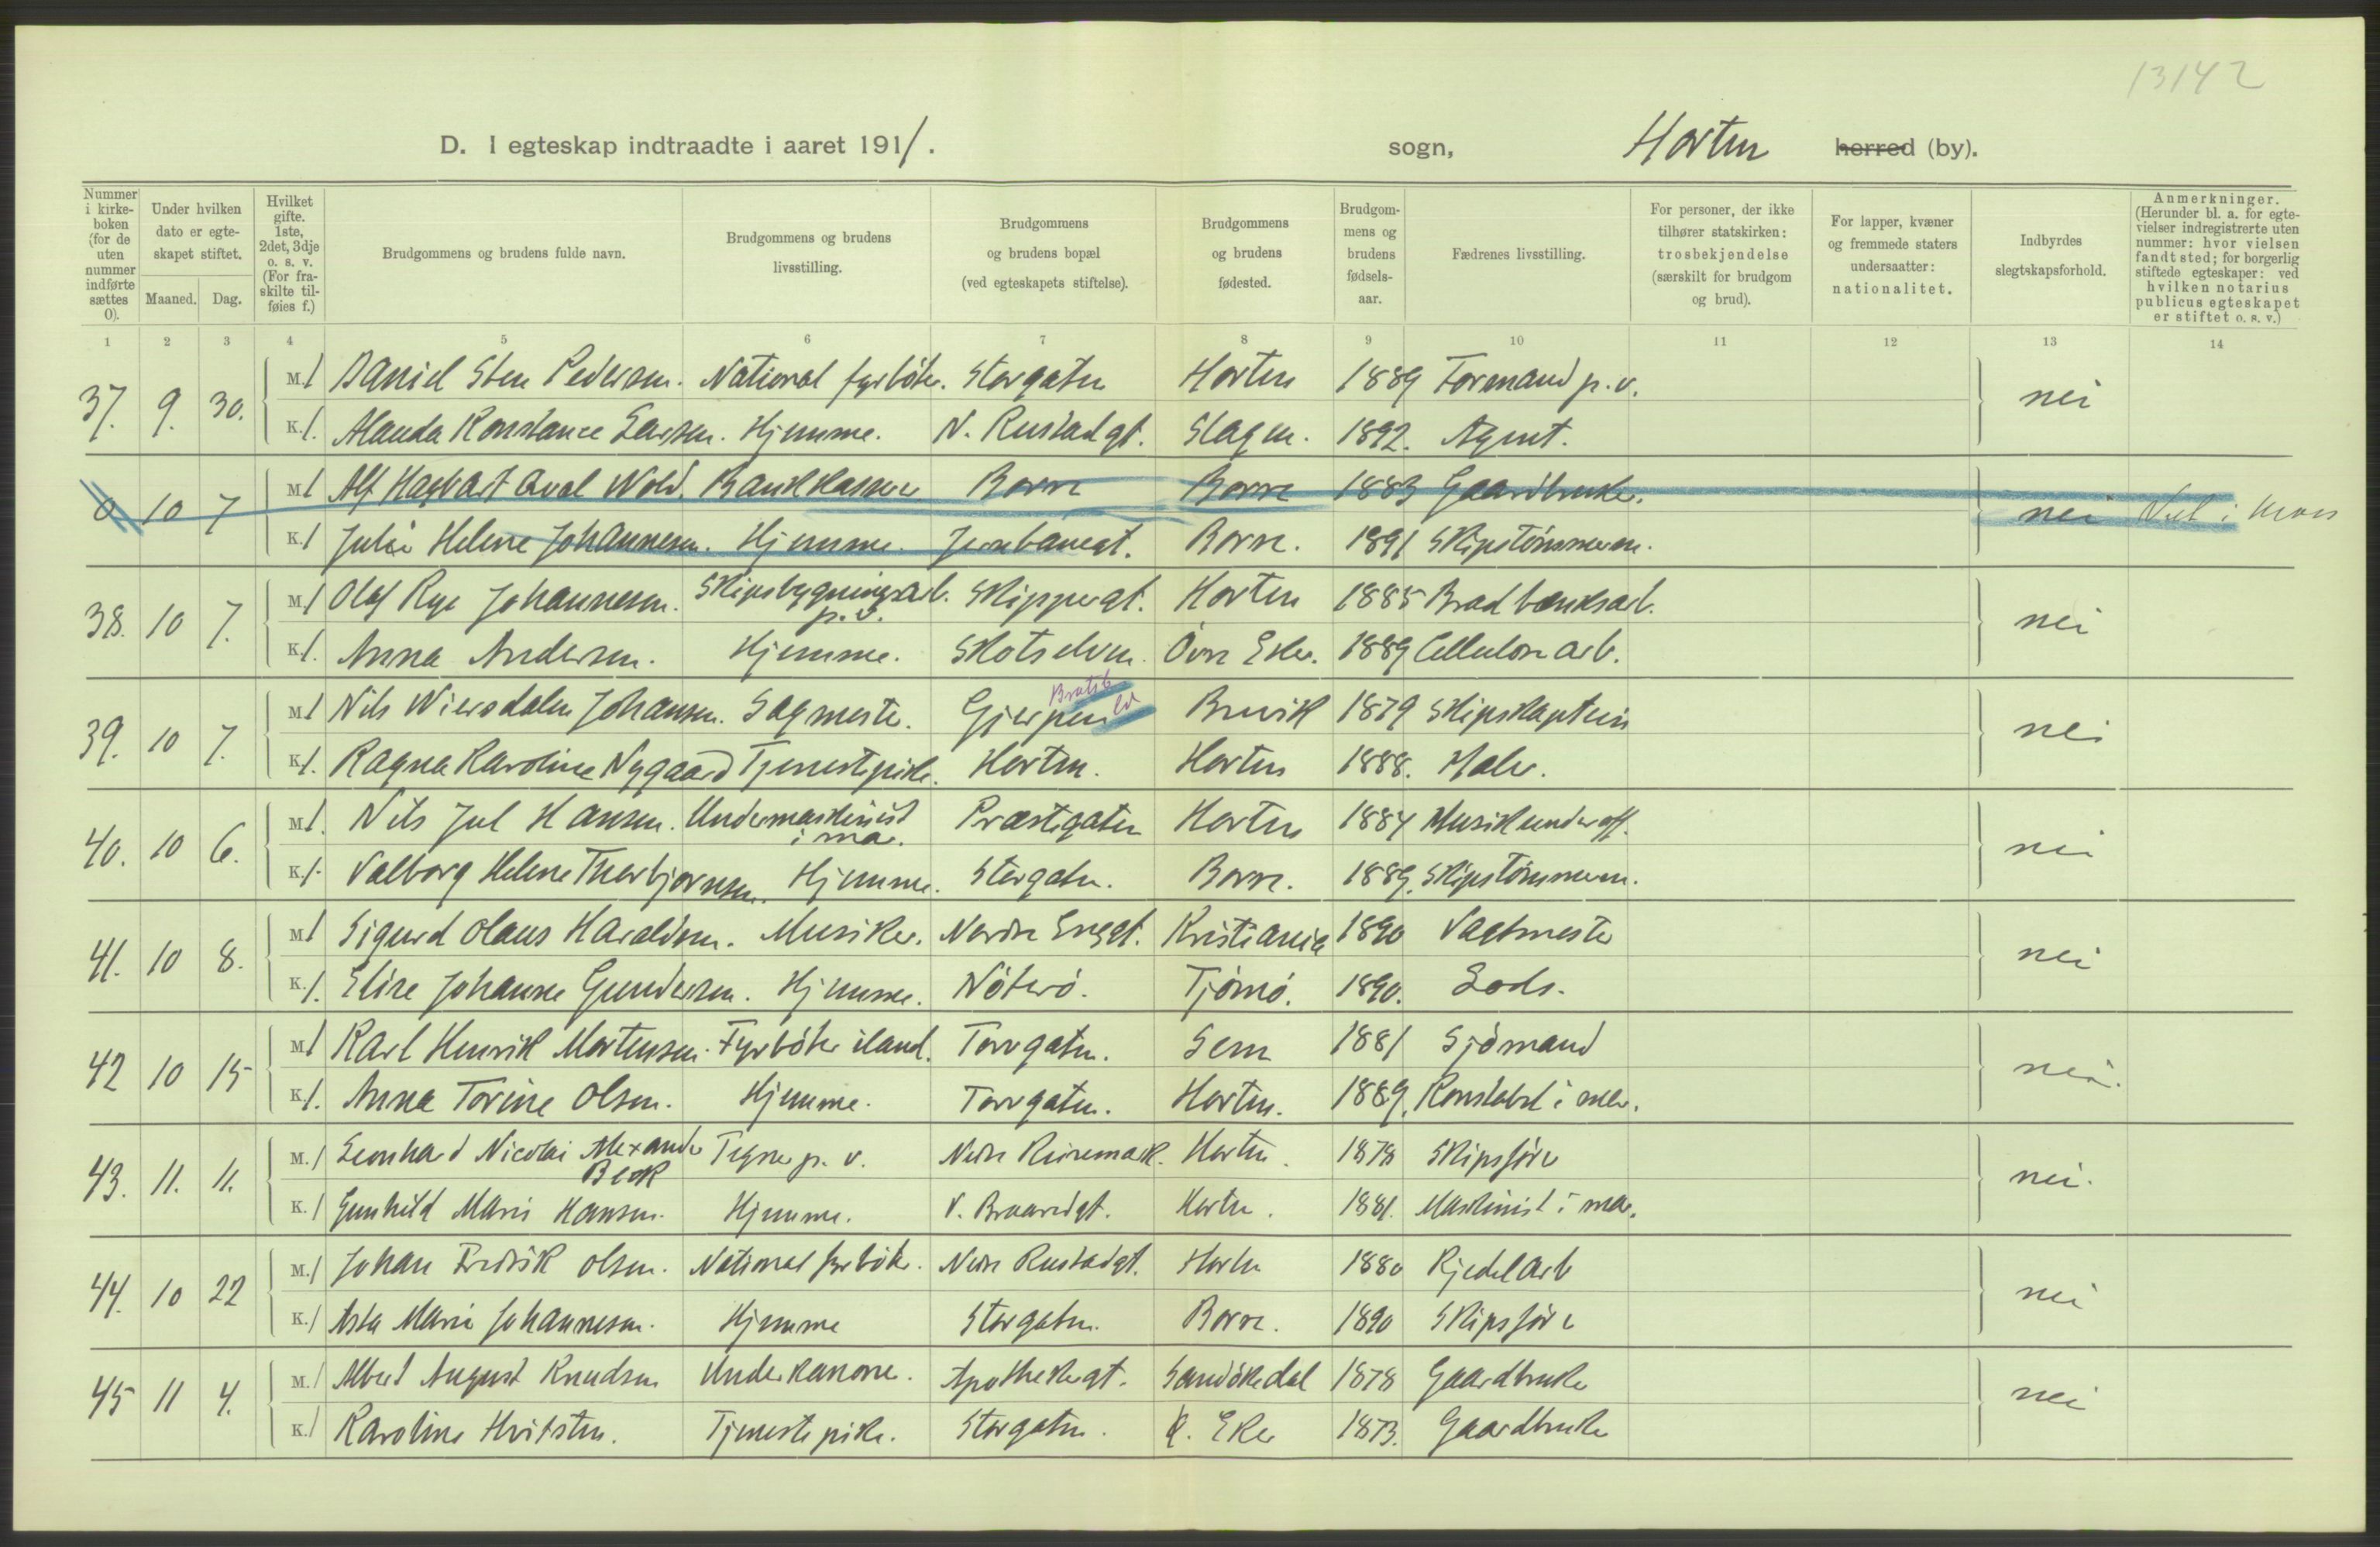 13142
D. I egteskap indtraadte i aaret 1911. sogn, Horten herred (by).
Nummer i kirkeboken (for de uten nummer indførte sættes 0).
Under hvilken dato er egteskapet stiftet.
Maaned. Dag.
Hvilket gifte. 1ste, 2det, 3dje o. s. v. (For fraskilte tilføies f.)
Brudgommens og brudens fulde navn.
Brudgommens og brudens livsstilling.
Brudgommens og brudens bopæl (ved egteskapets stiftelse).
Brudgommens og brudens fødested.
Brudgommens og brudens fødselsaar.
Fædrenes livsstilling.
For personer, der ikke tilhører statskirken: trosbekjendelse (særskilt for brudgom og brud).
For lapper, kvæner og fremmede staters undersaatter: nationalitet.
Indbyrdes slegtskapsforhold.
Anmerkninger. (Herunder bl. a. for egtevielser indregistrerte uten nummer: hvor vielsen fandt sted; for borgerlig stiftede egteskaper: ved hvilken notarius publicus egteskapet er stiftet o. s. v.)
1 2 3 4 5 6 7 8 9 10 11 12 13 14
37. 9. 30. M. 1 Daniel Sten Pedersen. National fyrböter. Storgaten Horten 1889 Formand p. v. nei
K. 1. Alanda Konstance Larsen. Hjemme. N. Rustadgt. Slagen. 1892. Agent.
0 10 7 M. 1 Alf Hagbart Wold. Bankkasserer Borre Borre 1883 Gaardbruker. nei Viet i
K. 1 Julie Helene Johannesen. Hjemme. Jernbanegt. Borre. 1891 Skipstömmerm.
38. 10 7. M. 1 Olaf Rye Johannesen. Skipsbygningsarb. p. v. Skippergt. Horten 1885 Bradbænksarb. nei
K. 1. Anna Andersen. Hjemme. Skotselven Övre Eker. 1889 Cellulose arb.
39. 10 7. M. 1 Nils Wiersdalen Johansen. Sagmester. Gjerpen Bratsb Bruvik 1879 Skipskaptein nei
K. 1. Ragna Karoline Nygaard Tjenestepike. Horten. Horten 1888. Maler.
40. 10 6. M. 1. Nils Jul Hansen. Undermaskinist i mar. Præstegaten Horten 1884 Musikunderoff. nei
K. 1. Valborg Helene Thorbjørnsen. Hjemme. Storgaten. Borre. 1889. Skipstömmerm.
41. 10 8. M. 1 Sigurd Olaus Haraldsen. Musiker. Nordre Enggt. Kristiania 1890 Vagtmester nei
K. 1. Elise Johanne Gundersen. Hjemme. Nöterö. Tjömö. 1890. Lods.
42 10 15 M. 1 Karl Henrik Mortensen. Fyrböter iland. Torvgaten. Sem 1881 Sjömand nei.
K. 1. Anna Torine Olsen. Hjemme. Torvgaten. Horten. 1889. Konstabel i mar.
43. 11. 11. M. 1 Leonhard Nicolai Alexander Beck Tegner p. v. Nedre Keisemark. Horten. 1878 Skipsförer nei.
K. 1 Gunhild Marie Hansen. Hjemme. V. Braarudgt. Horten. 1881. Maskinist i mar.
44. 10 22 M. 1 Johan Fredrik Olsen. National fyrböter. Nedre Rustadgt. Horten 1880 Kjedelarb nei
K. 1 Asta Marie Johannesen. Hjemme Storgaten. Borre. 1890 Skipsförer
45 11 4. M. 1 Albert August Knudsen Underkanoner. Apothekergt. Sandökedal 1878 Gaardbruker nei
K. 1 Karoline Hvitsten. Tjenestepike. Storgaten. Eker 1873. Gaardbruker